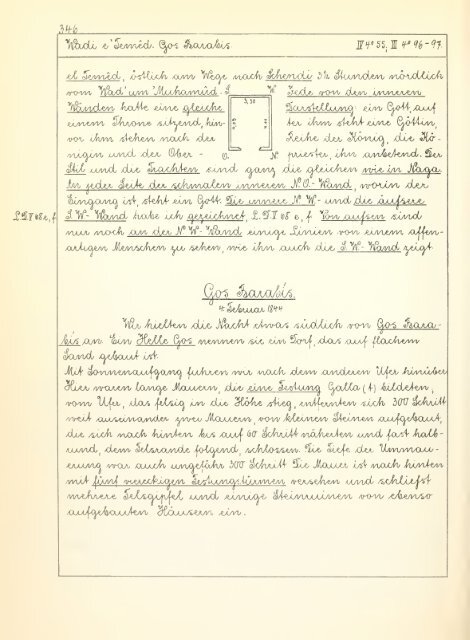 346
Wadi e' Temêd. Gos Barabis IV 4° 55, III 4° 96-97
el Temêd, östlich am Wege nach Schendi 3½ Stunden nördlich
vom Wad' um Muhamûd. S W Jede von den inneren
Wänden hatte eine gleiche 3,30 Darstellung ein Gott, auf
einem Throne sitzend, hin- ter ihm steht eine Göttin,
vor ihm stehen nach der Reihe der König, die Kö-
nigin und der Ober- O. N priester, ihn anbetend. Der
Stil und die Trachten sind ganz die gleichen wie in Naga
In jeder Seite der schmalen inneren N.O.-Wand, worin der
Eingang ist, steht ein Gott. Die innere N.W- und die äußere
L.D.V 68 e, f. S.W-Wand habe ich gezeichnet, L.D.V 68 e, f. Von außen sind
nur noch an der N.W-Wand einige Linien von einem affen-
artigen Menschen zu sehen, wie ihn auch die S.W-Wand zeigt
Gos Barabis.
4. Februar 1844
Wir hielten die Nacht etwas südlich von Gos Bara-
bis an. Ein Helle Gos nennen sie ein Dorf, das auf flachem
Sand gebaut ist.
Mit Sonnenaufgang fuhren wir nach dem anderen Ufer hinüber
Hier waren lange Mauern, die eine Festung Galla (t) bildeten,
vom Ufer, das felsig in die Höhe stieg, entfernten sich 300 Schritt
weit auseinander zwei Mauern, von kleinen Steinen aufgebaut,
die sich nach hinten bis auf 60 Schritt näherten und fast halb-
rund, dem Felsrande folgend, schlossen. Die Tiefe der Ummau-
erung war auch ungefähr 300 Schritt. Die Mauer ist nach hinten
mit fünf viereckigen Festungstürmen versehen und schließt
mehrere Felsgipfel und einige Steinruinen von ebenso
aufgebauten Häusern ein.